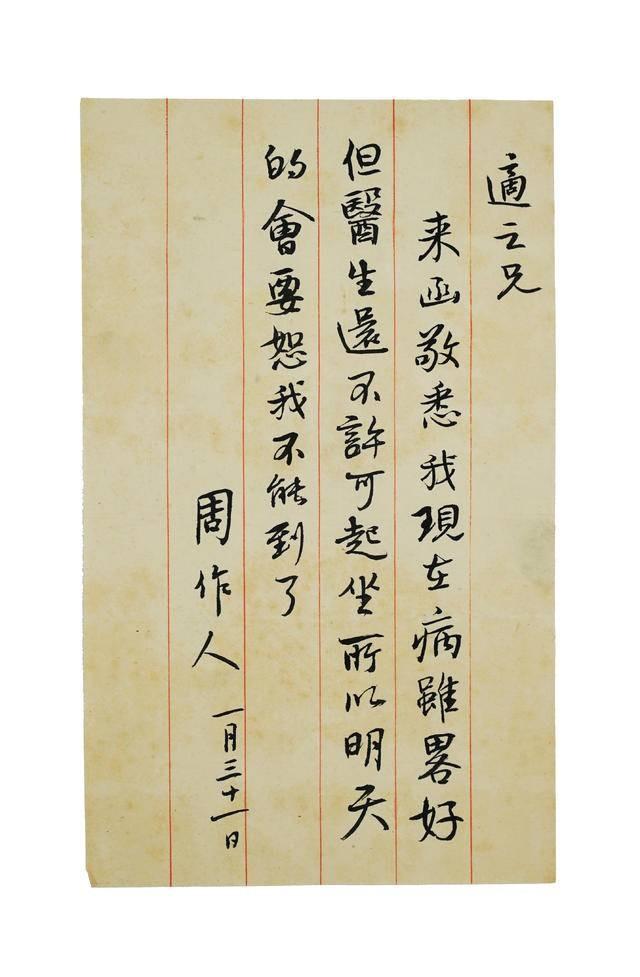 適之兄
来函敬悉我現在病雖畧好
但醫生還不許可起坐所以明天
的會要恕我不能到了
周作人 一月三十一日